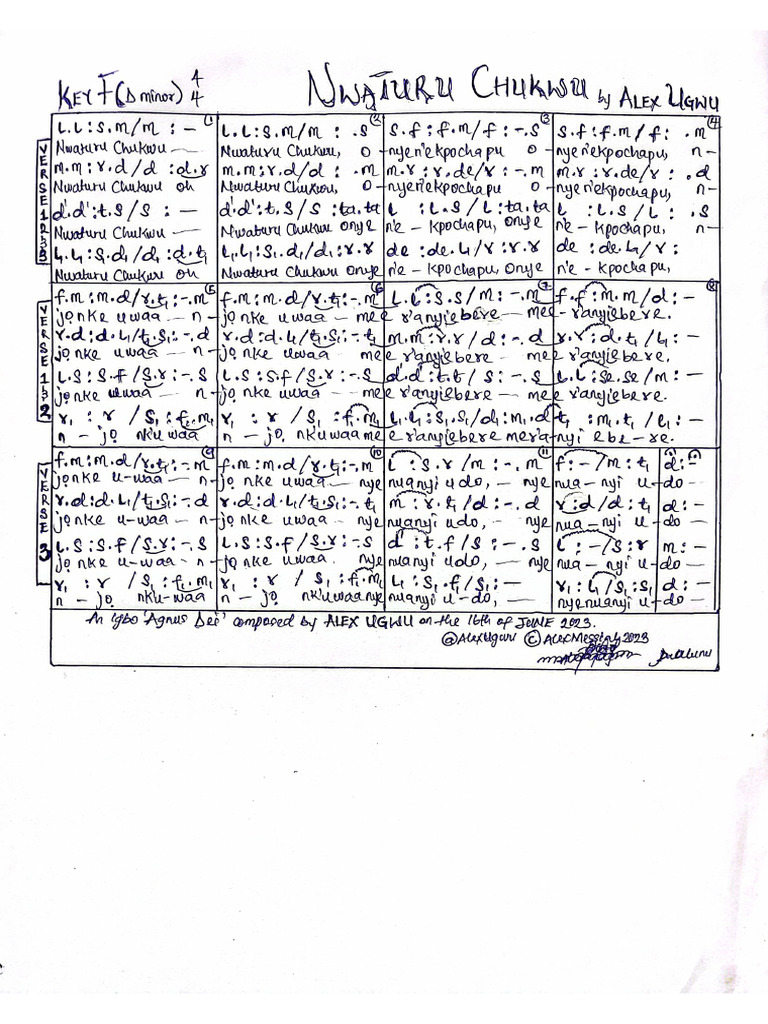 KEY F (D minor) 4/4 NWATURU CHUKWU by ALEX UGWU
VERSE 1,2,3
L.L:S.m/m:— (1) L.L:S.m/m: .S (2) S.f:f.m/f:-.S (3) S.f:f.m/f: .m (4)
Nwaturu Chukwu — Nwaturu Chukwu, O – nyen'ekpochapu O – nyen'ekpochapu, n –
m.m:r.d/d:d.r m.m:r.d/d: .m m.r:r.de/r:-.m m.r:r.de/r: .d
Nwaturu Chukwu oh Nwaturu Chukwu, O – nyen'ekpochapu O – nyen'ekpochapu, n –
d'.d':t.S/S:— d'.d':t.S/S:ta.ta L :L.S/L:ta.ta L :L.S/L: .S
Nwaturu Chukwu — Nwaturu Chukwu Onye n'e – kpochapu, Onye n'e – kpochapu, n –
L₁.L₁:S₁.d₁/d₁:d.t₁ L₁.L₁:S₁.d₁/d₁:r.r de:de.L₁/r:r.r de:de.L₁/r:
Nwaturu Chukwu oh Nwaturu Chukwu Onye n'e – kpochapu, Onye n'e – kpochapu,
VERSE 1 & 2
f.m:m.d/r.t₁:-.m (5) f.m:m.d/r.t₁:-.m (6) L.L:S.S/m:-.m (7) f.f:m.m/d:— (8)
jọ nke uwaa — n – jọ nke uwaa — mee r'anyiebere — mee – r'anyiebere.
r.d:d.L₁/t₁.S₁:-.d r.d:d.L₁/t₁.S₁:-.t₁ m.m:r.r/d:-.d r.r:d.t₁/L₁:—
jọ nke uwaa — n – jọ nke uwaa mee r'anyiebere – mee r'anyiebere,
L.S:S.f/S.r:-.S L.S:S.f/S.r:-.S d'.d':t.t/S:-.S L.L:se.se/m:—
jọ nke uwaa — n – jọ nke uwaa — mee r'anyiebere — mee r'anyiebere.
r₁:r/S₁:f₁.m₁ r₁:r/S₁:f₁.m₁ L₁.L₁:S₁.S₁/d₁:m₁.d t₁:m₁.t₁/L₁:—
n – jọ nk'uwaa n – jọ nk'uwaa mee r'anyiebere mer'a – nyi ebe – re.
VERSE 3
f.m:m.d/r.t₁:-.m (9) f.m:m.d/r.t₁:-.m (10) L :S.r/m:-.m (11) f:-/m:t₁ d:—
jọ nke u-waa — n – jọ nke uwaa — nye nuanyi udo, — nye nua – nyi u – do —
r.d:d.L₁/t₁.S₁:-.d r.d:d.L₁/t₁.S₁:-.d m:r.t₁/d:-.d r:d/d:t₁ d:—
jọ nke u-waa — n – jọ nke uwaa — nye nuanyi udo, — nye nua – nyi u – do —
L.S:S.f/S.r:-.S L.S:S.f/S.r:-.S d':t.f/S:-.S L:-/S:r m:—
jọ nke u-waa – n – jọ nke uwaa. nye nuanyi udo, — nye nua – nyi u – do
r₁:r/S₁:f₁.m₁ r₁:r/S₁:f₁.m₁ L₁:S₁.f₁/S₁:— r₁:L₁/S₁:S₁ d:—
n – jọ nk'u-waa n – jọ nk'uwaa nye nuanyi u-do, — nye nuanyi u – do —
An Igbo 'Agnus Dei' composed by ALEX UGWU on the 16th of JUNE 2023.
@AlexUgwu © AlexMessiah 2023